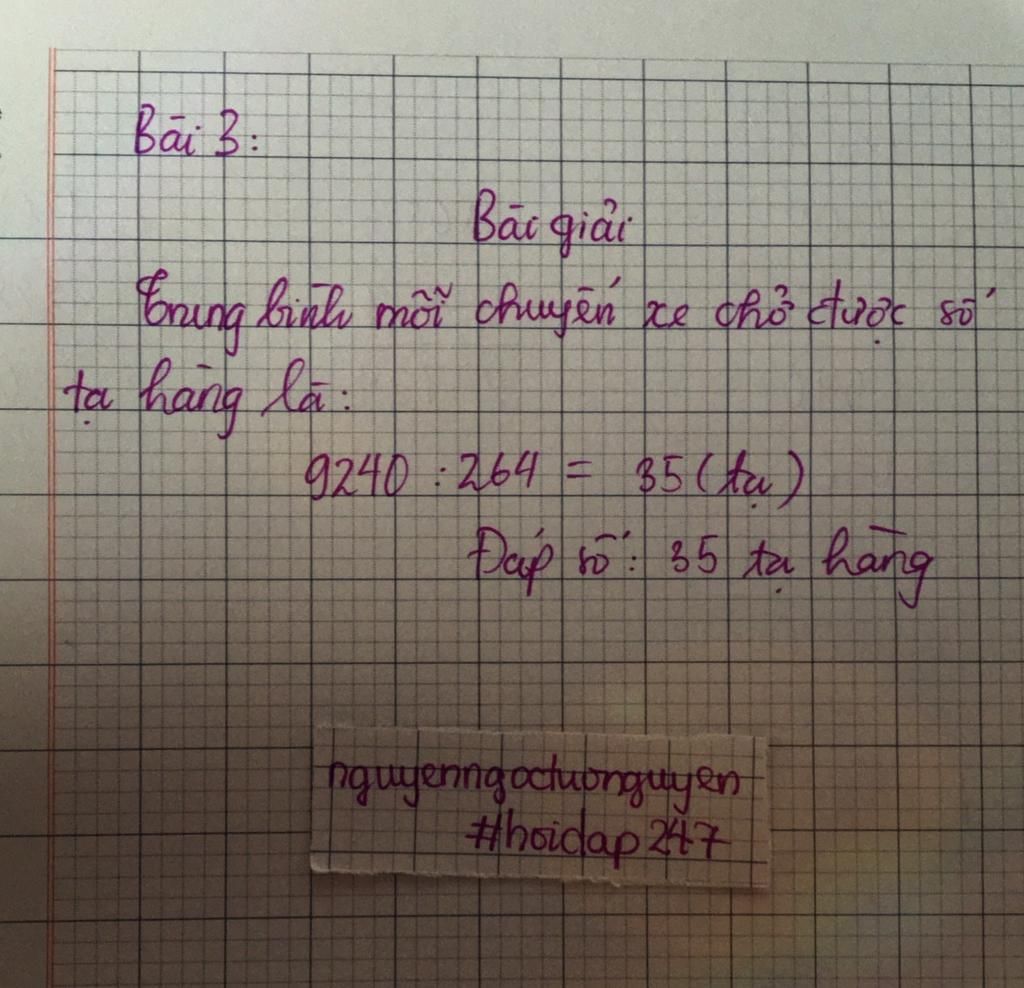 Bài 3:
Bài giải
Trung bình mỗi chuyến xe chở được số
tạ hàng là:
9240 : 264 = 35 (tạ)
Đáp số: 35 tạ hàng
nguyenngoctuonguyen
#hoidap247